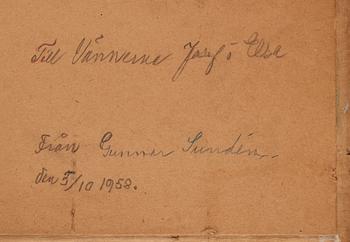 Till Vännerna Josef o Elsa
Från Gunnar Sundén
den 5/10 1958.